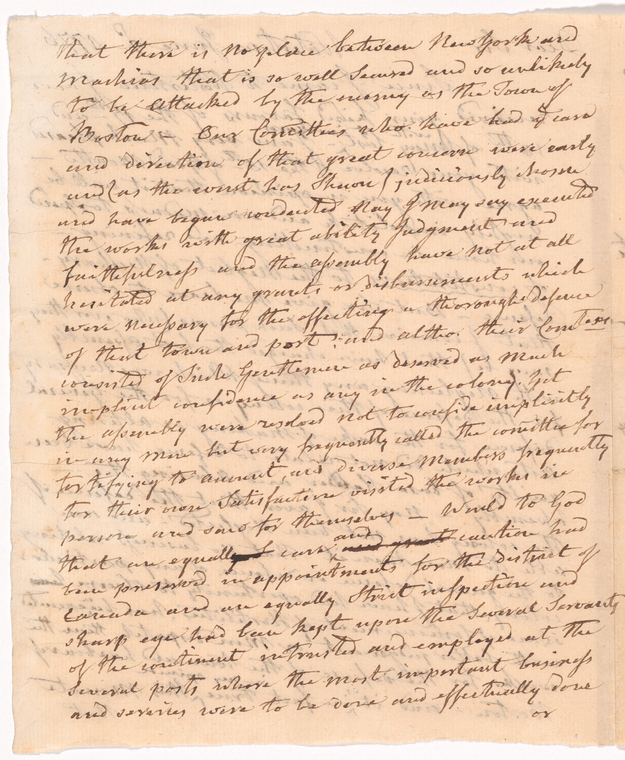 that there is no place between New York and
Machias that is so well Secured and so unlikely
to be attacked by the enemy as the Town of
Boston – Our Comittees who have had ye care
and direction of that great concern were early
and (as the event has Shewn) judiciously chosen
and have begun conducted Nay I may say executed
the works with great ability Judgment and
faithfulness and the assembly have not at all
hesitated at any grants or disbursements which
were necessary for the effecting a thorough defence
of that town and port: and altho. their Comtees
consisted of Such Gentlemen as deserved as much
implicit confidence as any in the colony yet
the assembly were resolved not to confide implicitly
in any men but very frequently called the comittee for
fortifying to account, and diverse Members frequently
for their own Satisfaction visited the works in
person and saw for themselves – Would to God
that an equal care and caution had
been preserved in appointments for the district of
Canada and an equally Strict inspection and
sharp eye had been kept upon the Several Servants
of the continent intrusted and employed at the
several posts where the most important business
and services were to be done and effectually done
or